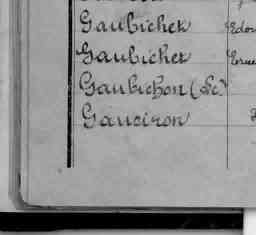 Gaubicher Edou
Gaubicher
Gaubichon (Le)
Gauciron